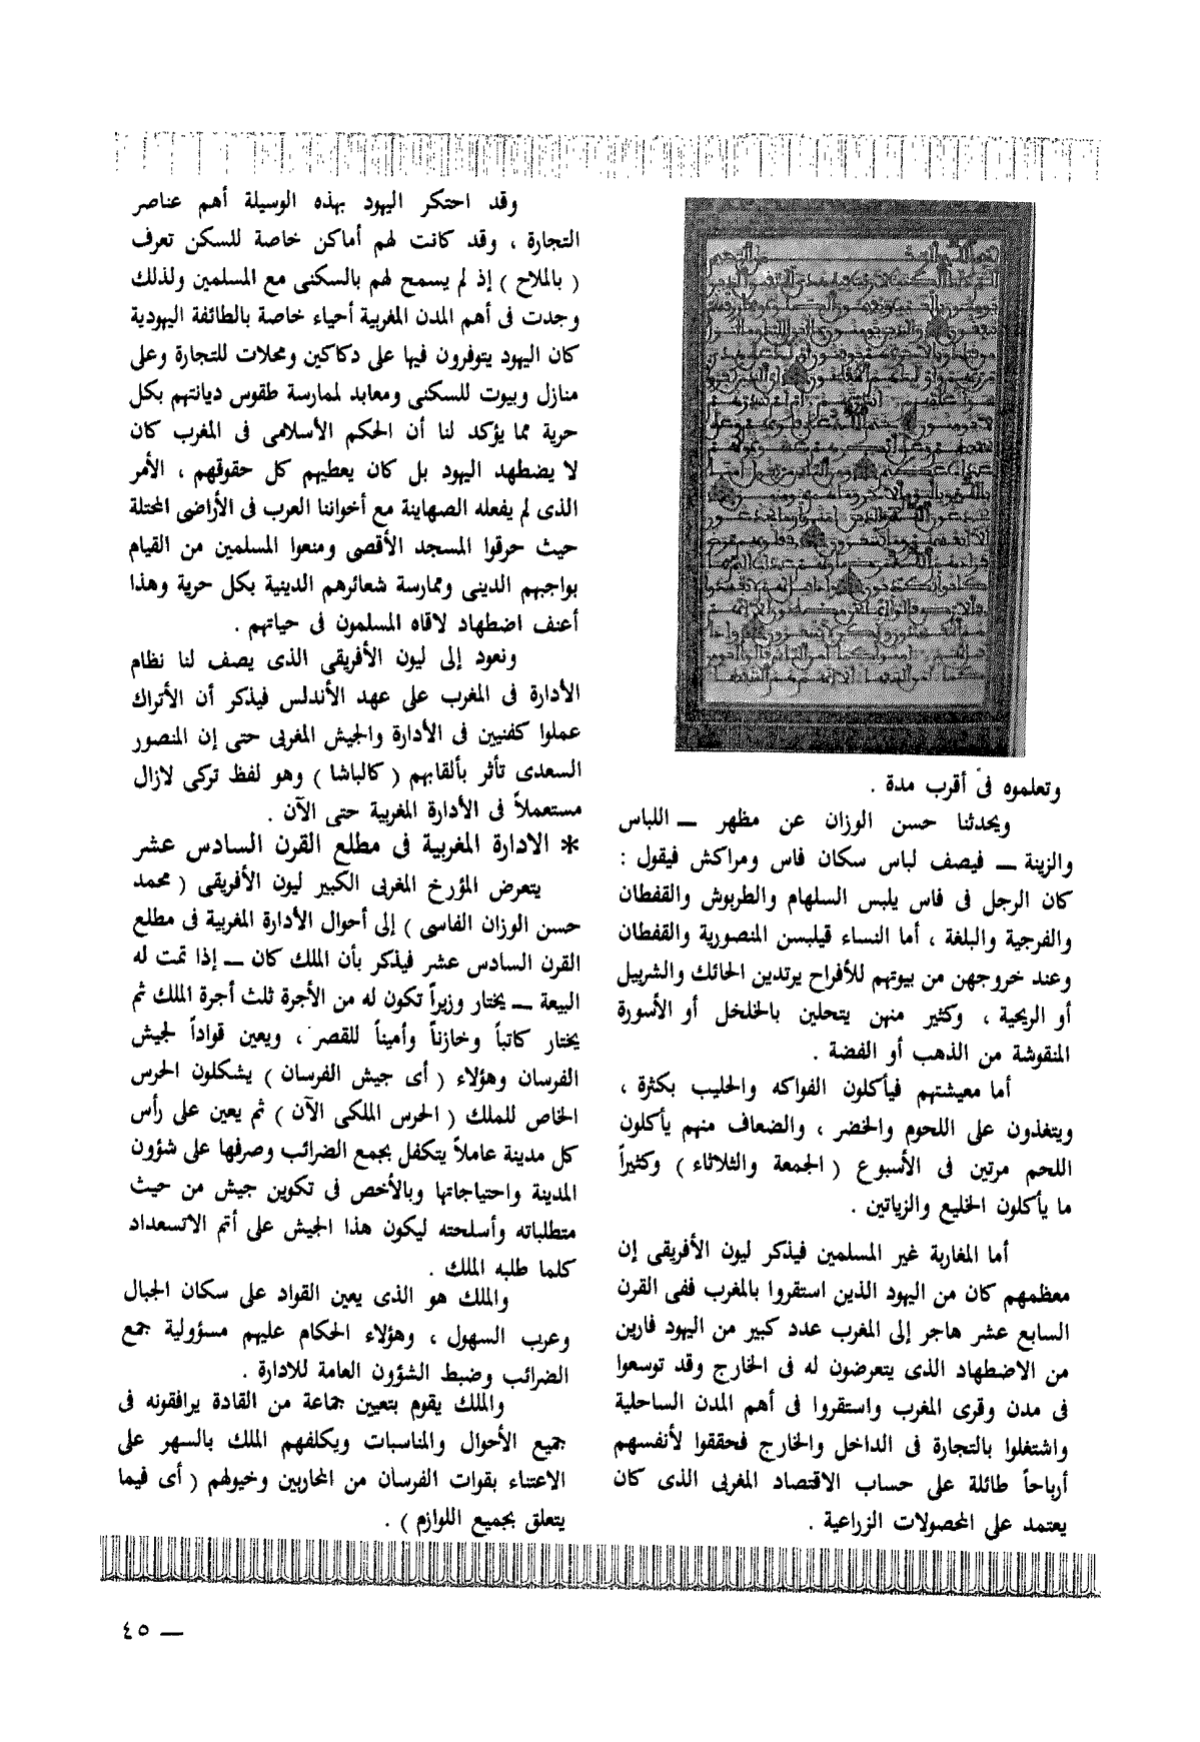 وتعلموه فى أقرب مدة .
ويحدثنا حسن الوزان عن مظهر — اللباس
والزينة — فيصف لباس سكان فاس ومراكش فيقول :
كان الرجل فى فاس يلبس السلهام والطربوش والقفطان
والفرجية والبلغة ، أما النساء قيلبسن المنصورية والقفطان
وعند خروجهن من بيوتهم للأفراح يرتدين الحائك والشربيل
أو الريحية ، وكثير منهن يتحلين بالخلخل أو الأسورة
المنقوشة من الذهب أو الفضة .
أما معيشتهم فيأكلون الفواكه والحليب بكثرة ،
ويتغذون على اللحوم والخضر ، والضعاف منهم يأكلون
اللحم مرتين فى الأسبوع ( الجمعة والثلاثاء ) وكثيراً
ما يأكلون الخليع والزياتين .
أما المغاربة غير المسلمين فيذكر ليون الأفريقى إن
معظمهم كان من اليهود الذين استقروا بالمغرب ففى القرن
السابع عشر هاجر إلى المغرب عدد كبير من اليهود فارين
من الاضطهاد الذى يتعرضون له فى الخارج وقد توسعوا
فى مدن وقرى المغرب واستقروا فى أهم المدن الساحلية
واشتغلوا بالتجارة فى الداخل والخارج فحققوا لأنفسهم
أرباحاً طائلة على حساب الاقتصاد المغربى الذى كان
يعتمد على المحصولات الزراعية .
وقد احتكر اليهود بهذه الوسيلة أهم عناصر
التجارة ، وقد كانت لهم أماكن خاصة للسكن تعرف
( بالملاح ) إذ لم يسمح لهم بالسكنى مع المسلمين ولذلك
وجدت فى أهم المدن المغربية أحياء خاصة بالطائفة اليهودية
كان اليهود يتوفرون فيها على دكاكين ومحلات للتجارة وعلى
منازل وبيوت للسكنى ومعابد لممارسة طقوس ديانتهم بكل
حرية مما يؤكد لنا أن الحكم الأسلامى فى المغرب كان
لا يضطهد اليهود بل كان يعطيهم كل حقوقهم ، الأمر
الذى لم يفعله الصهاينة مع أخواننا العرب فى الأراضى المحتلة
حيث حرقوا المسجد الأقصى ومنعوا المسلمين من القيام
بواجبهم الدينى وممارسة شعائرهم الدينية بكل حرية وهذا
أعنف اضطهاد لاقاه المسلمون فى حياتهم .
ونعود إلى ليون الأفريقى الذى يصف لنا نظام
الأدارة فى المغرب على عهد الأندلس فيذكر أن الأتراك
عملوا كفنيين فى الأدارة والجيش المغربى حتى إن المنصور
السعدى تأثر بألقابهم ( كالباشا ) وهو لفظ تركى لازال
مستعملاً فى الأدارة المغربية حتى الآن .
* الادارة المغربية فى مطلع القرن السادس عشر
يتعرض المؤرخ المغربى الكبير ليون الأفريقى ( محمد
حسن الوزان الفاسى ) إلى أحوال الأدارة المغربية فى مطلع
القرن السادس عشر فيذكر بأن الملك كان — إذا تمت له
البيعة — يختار وزيراً تكون له من الأجرة ثلث أجرة الملك ثم
يختار كاتباً وخازناً وأميناً للقصر ، ويعين قواداً لجيش
الفرسان وهؤلاء ( أى جيش الفرسان ) يشكلون الحرس
الخاص للملك ( الحرس الملكى الآن ) ثم يعين على رأس
كل مدينة عاملاً يتكفل بجمع الضرائب وصرفها على شؤون
المدينة واحتياجاتها وبالأخص فى تكوين جيش من حيث
متطلباته وأسلحته ليكون هذا الجيش على أتم الاتسعداد
كلما طلبه الملك .
والملك هو الذى يعين القواد على سكان الجبال
وعرب السهول ، وهؤلاء الحكام عليهم مسؤولية جمع
الضرائب وضبط الشؤون العامة للادارة .
والملك يقوم بتعيين جماعة من القادة يرافقونه فى
جميع الأحوال والمناسبات ويكلفهم الملك بالسهر على
الاعتناء بقوات الفرسان من المحاربين وخيولهم ( أى فيما
يتعلق بجميع اللوازم ) .
— ٤٥